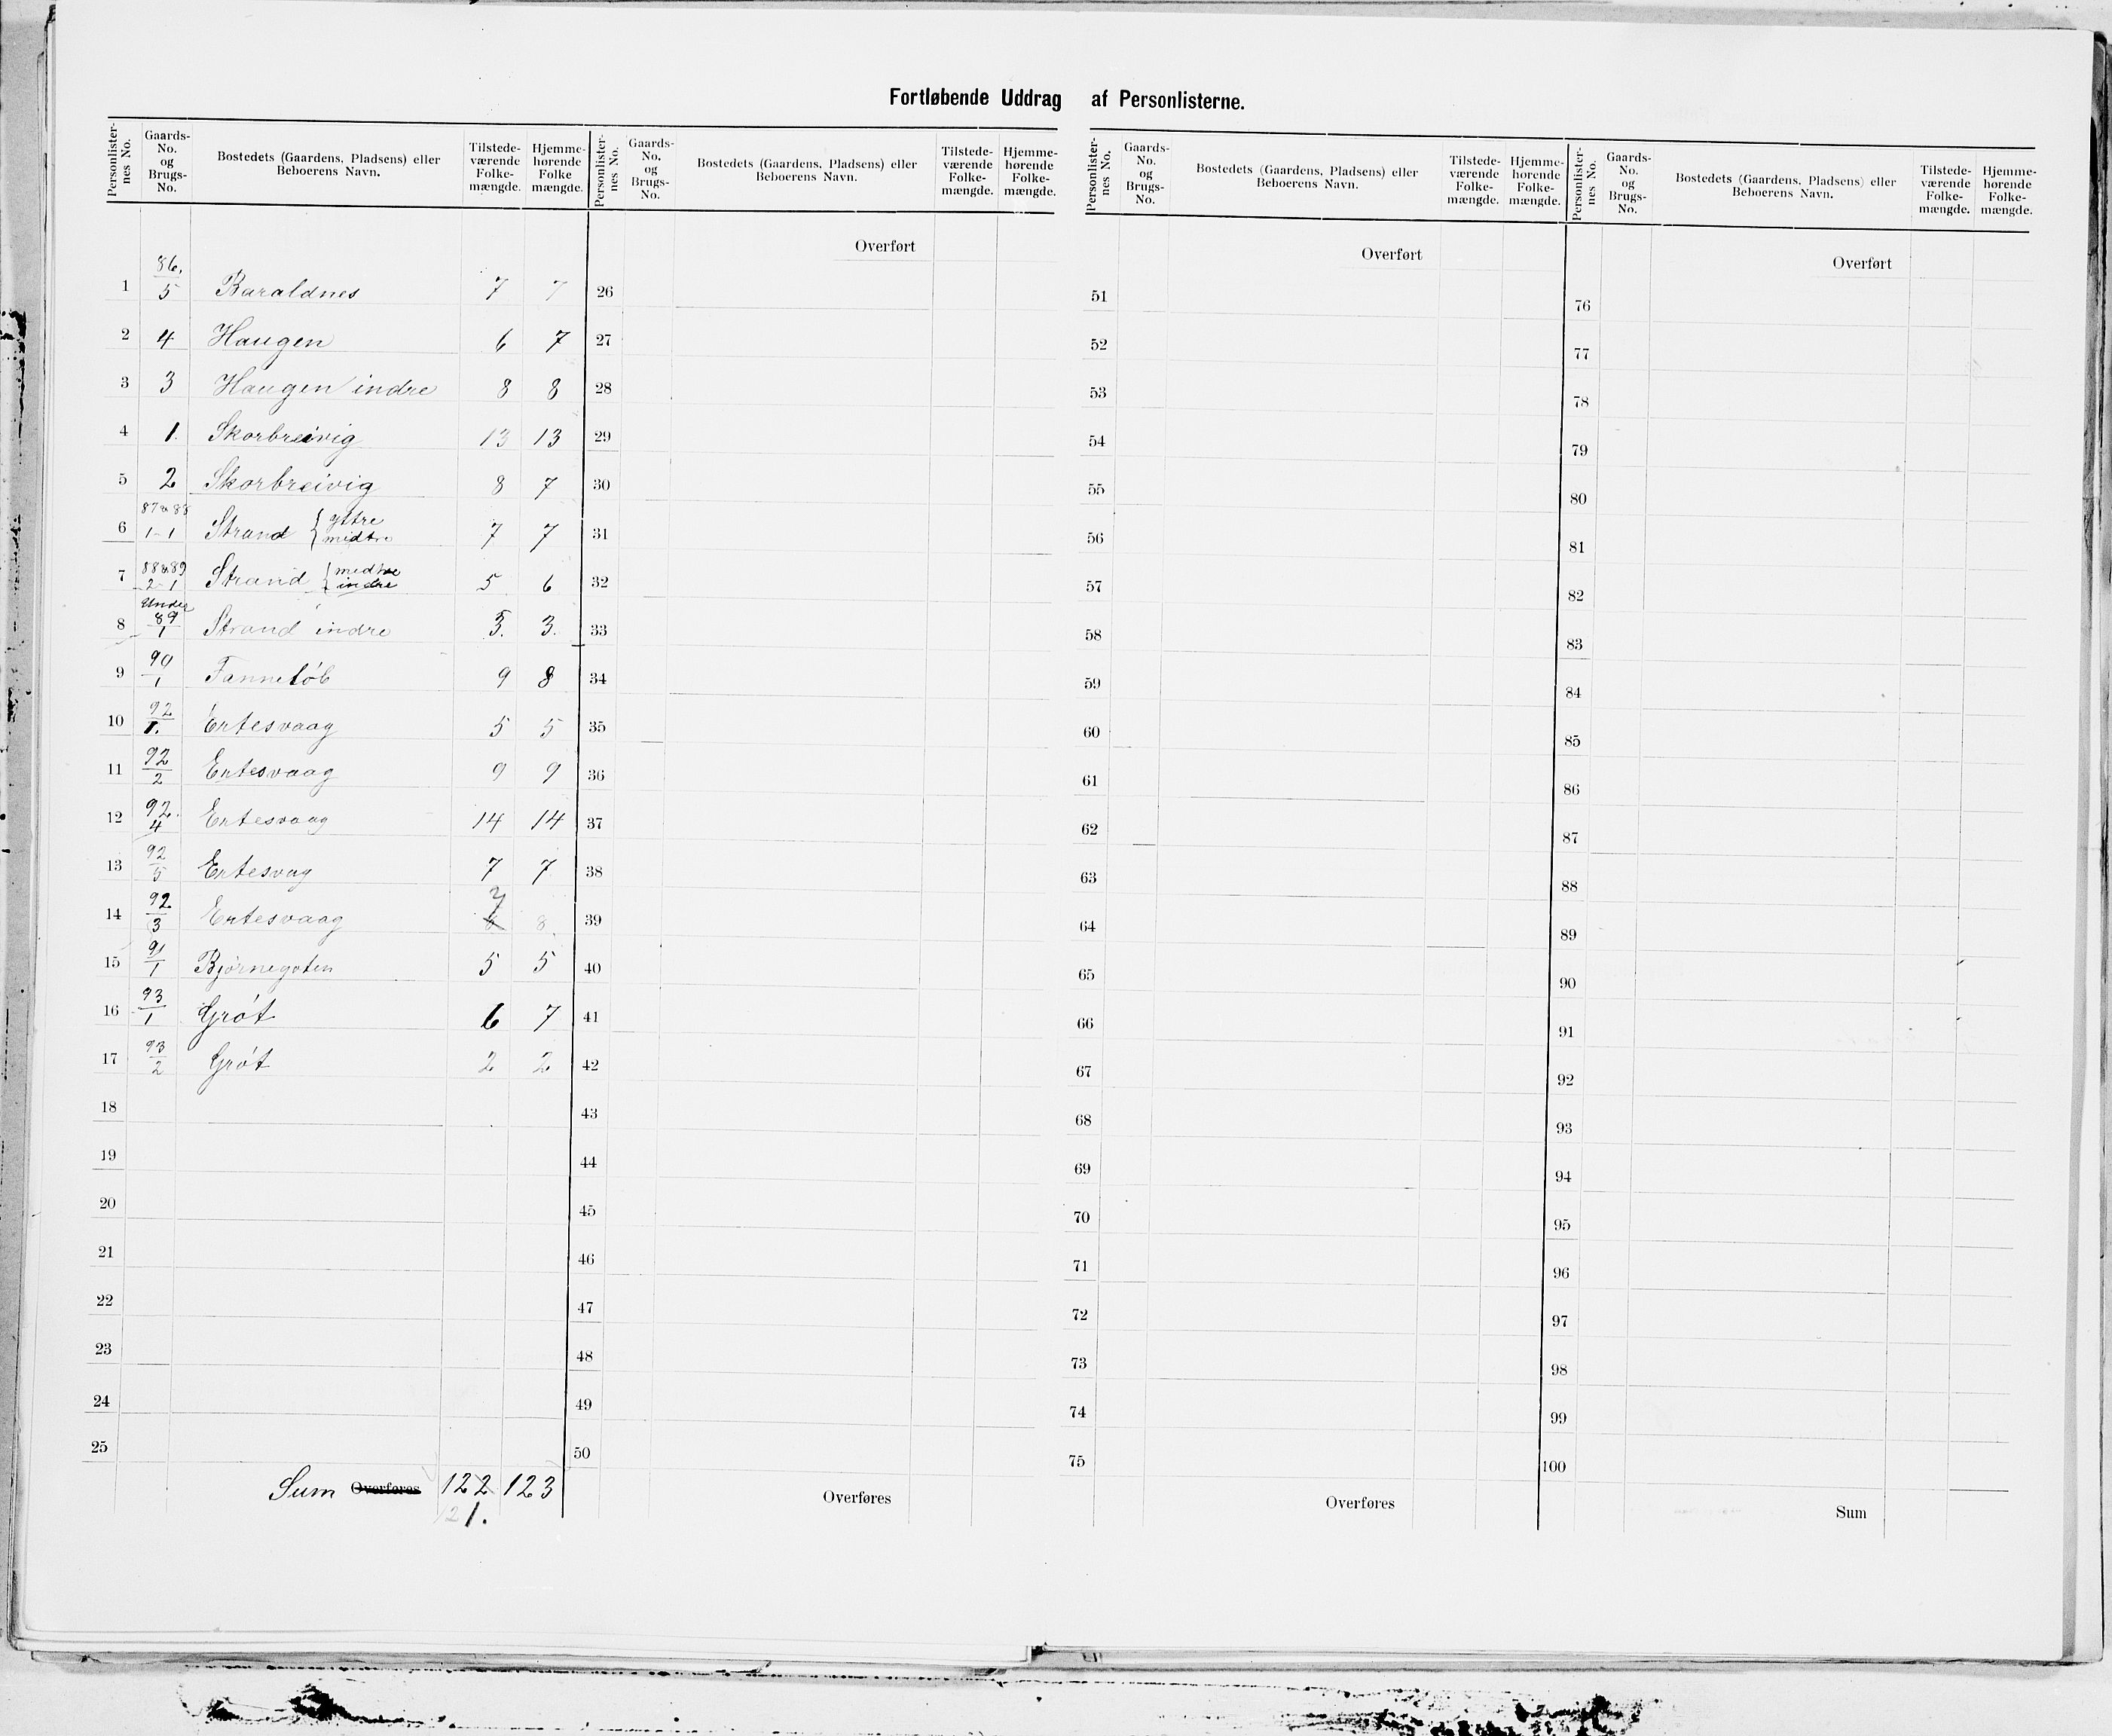 Fortløbende Uddrag af Personlisterne.
Personlister-nes No. | Gaards-No. og Brugs-No. | Bostedets (Gaardens, Pladsens) eller Beboerens Navn. | Tilstede-værende Folke-mængde. | Hjemme-hørende Folke mængde.
1 | 86, 5 | Baraldnes | 7 | 7
2 | 4 | Haugen | 6 | 7
3 | 3 | Haugen indre | 8 | 8
4 | 1. | Skorbreivig | 13 | 13
5 | 2 | Skorbreivig | 8 | 7
6 | 87 & 88 1-1 | Strand { yttre midtre | 7 | 7
7 | 88 & 89 2-1 | Strand { medtre indre | 5 | 6
8 | Under 89/1 | Strand indre | 3. | 3.
9 | 90/1 | Fanneløb | 9 | 8
10 | 92/1. | Ertesvaag | 5 | 5
11 | 92/2 | Ertesvaag | 9 | 9
12 | 92/4 | Ertesvaag | 14 | 14
13 | 92/5 | Ertesvag | 7 | 7
14 | 92/3 | Ertesvaag | 7 | 8.
15 | 91/1 | Bjørnegoten | 5 | 5
16 | 93/1 | Grøt | 6 | 7
17 | 93/2 | Grøt | 2 | 2
18
19
20
21
22
23
24
25
Sum Overføres 122 123
121.
Personlister-nes No. | Gaards-No. og Brugs-No. | Bostedets (Gaardens, Pladsens) eller Beboerens Navn. | Tilstede-værende Folke-mængde. | Hjemme-hørende Folke-mængde.
Overført
26
27
28
29
30
31
32
33
34
35
36
37
38
39
40
41
42
43
44
45
46
47
48
49
50
Overføres
Personlister-nes No. | Gaards-No. og Brugs-No. | Bostedets (Gaardens, Pladsens) eller Beboerens Navn. | Tilstede-værende Folke-mængde. | Hjemme-hørende Folke-mængde.
Overført
51
52
53
54
55
56
57
58
59
60
61
62
63
64
65
66
67
68
69
70
71
72
73
74
75
Overføres
Personlister-nes No. | Gaards-No. og Brugs-No. | Bostedets (Gaardens, Pladsens) eller Beboerens Navn. | Tilstede-værende Folke-mængde. | Hjemme-hørende Folke-mængde.
Overført
76
77
78
79
80
81
82
83
84
85
86
87
88
89
90
91
92
93
94
95
96
97
98
99
100
Sum